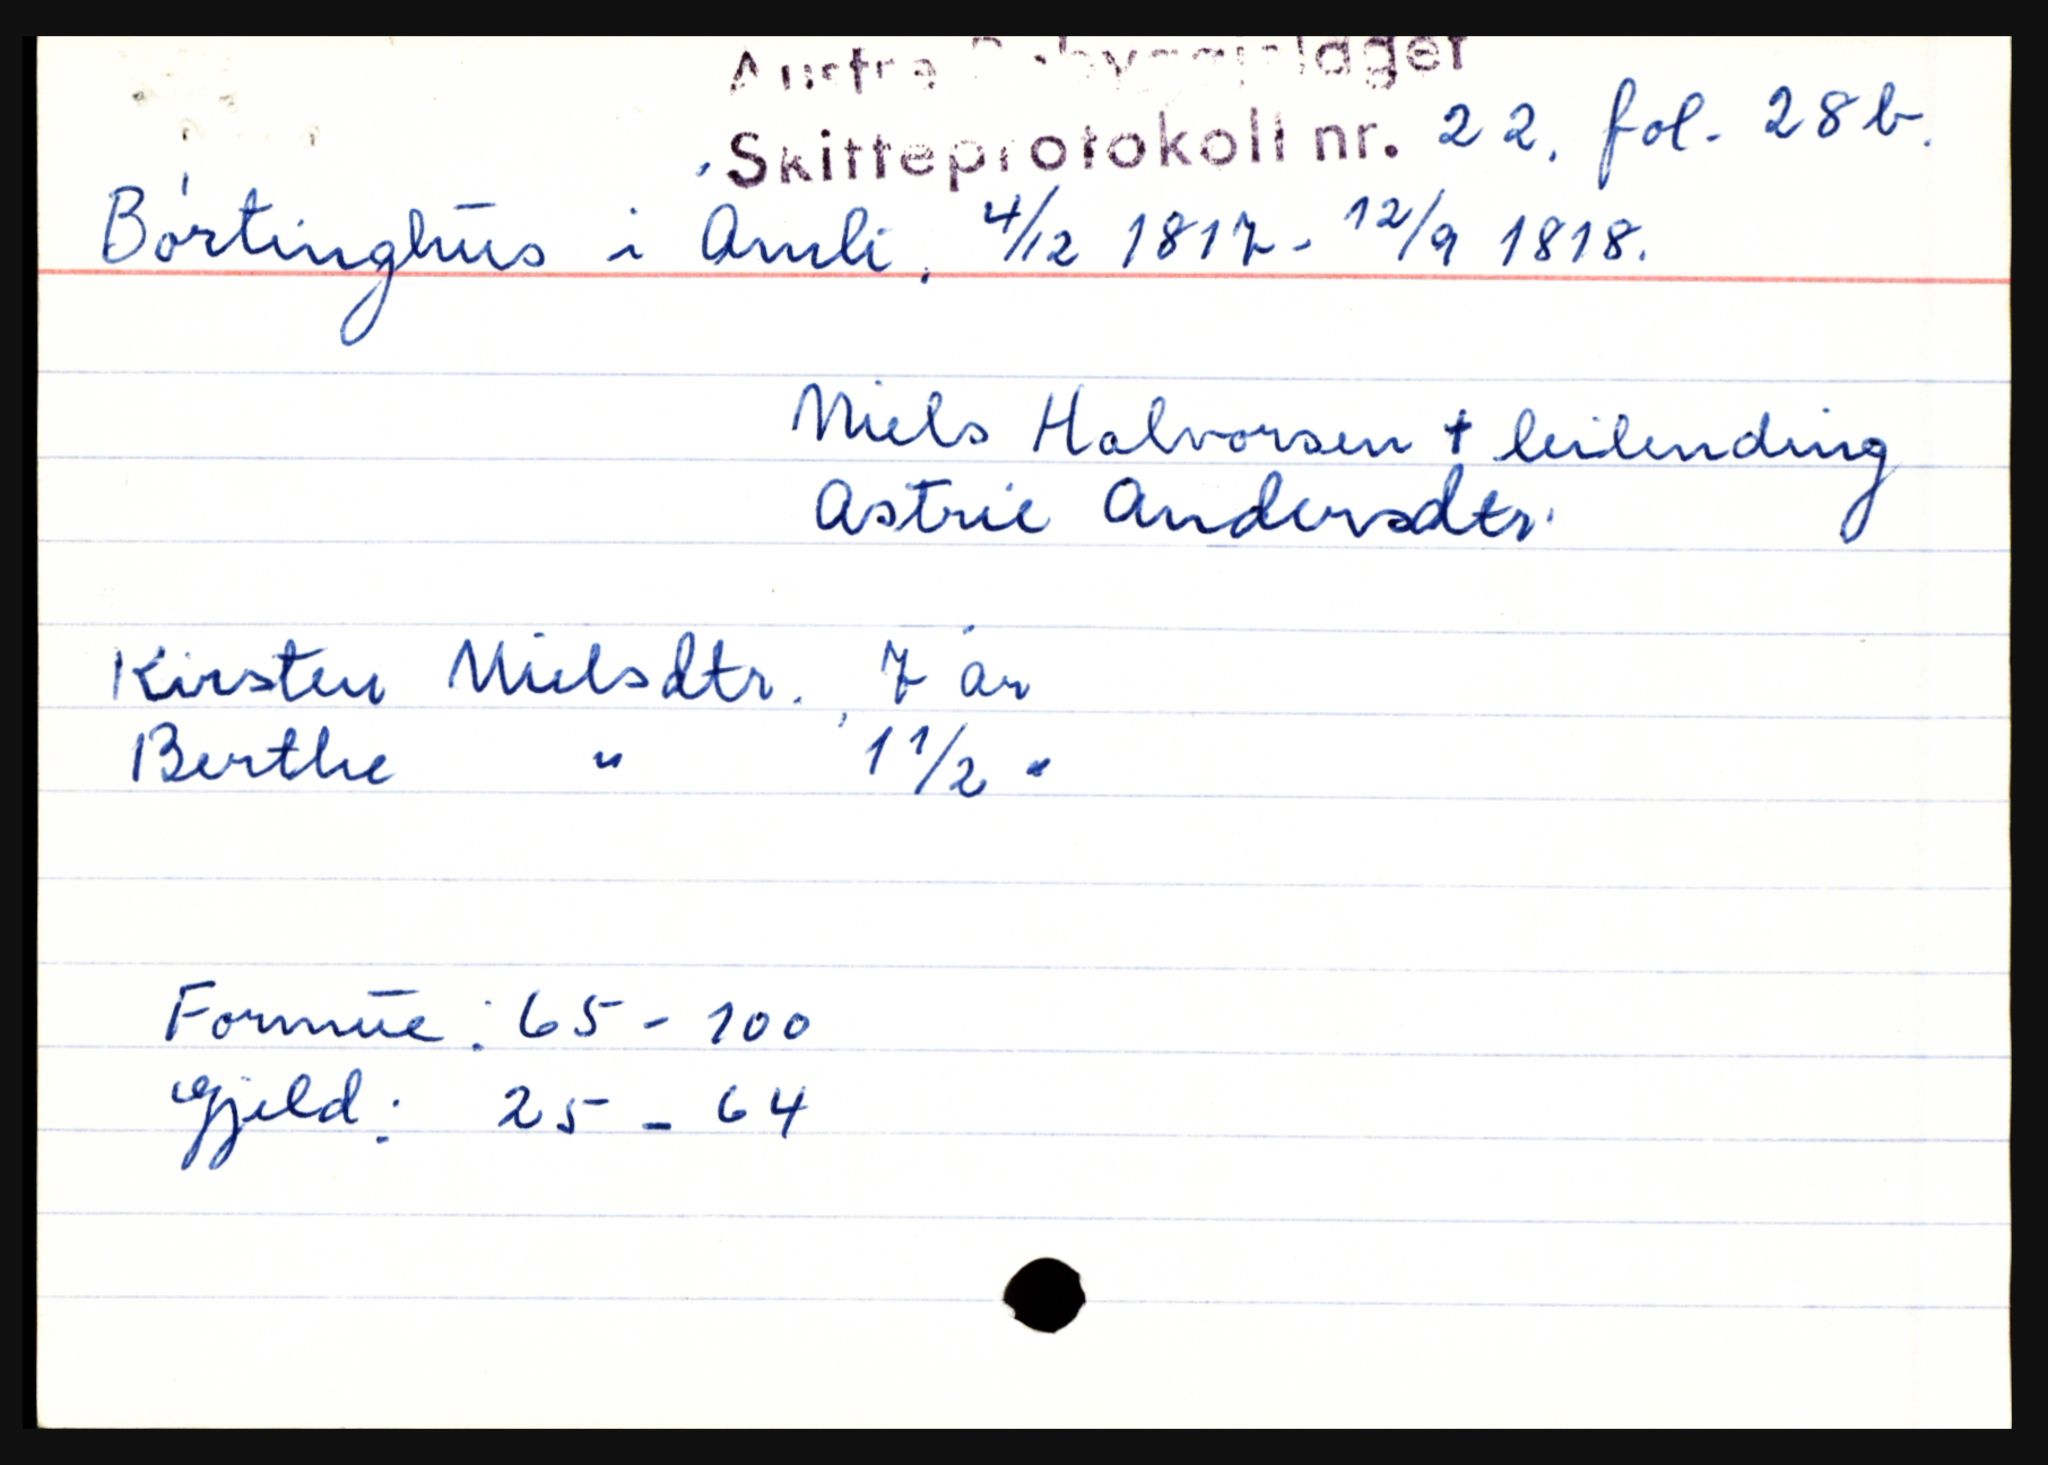 Austre Råbyggjelaget
Skifteprotokoll nr. 22. fol. 28 b.
Børtinghūs i Amli. 4/12 1817 - 12/9 1818.
Niels Halvorsen † leilending
Astrie Andersdtr.
Kirsten Nielsdtr. 7 år
Berthe " 1 1/2 "
Formūe: 65 - 100
Gjeld: 25 - 64